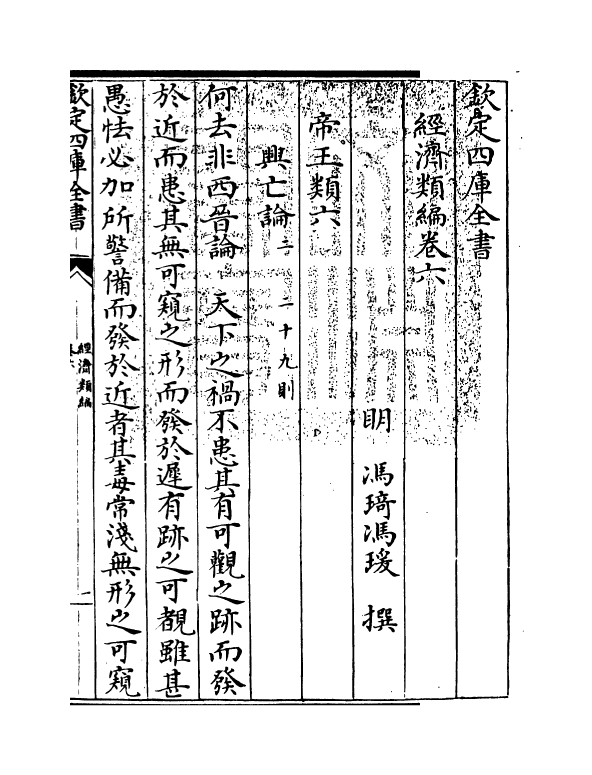 欽定四庫全書
經濟類編卷六
明 馮琦馮瑗 撰
帝王類六
興亡論二 二十九則
何去非西晉論 天下之禍不患其有可觀之跡而發
於近而患其無可窺之形而發於遲有跡之可覩雖甚
愚怯必加所警備而發於近者其毒常淺無形之可窺
欽定四庫全書
經濟類編
卷六
一